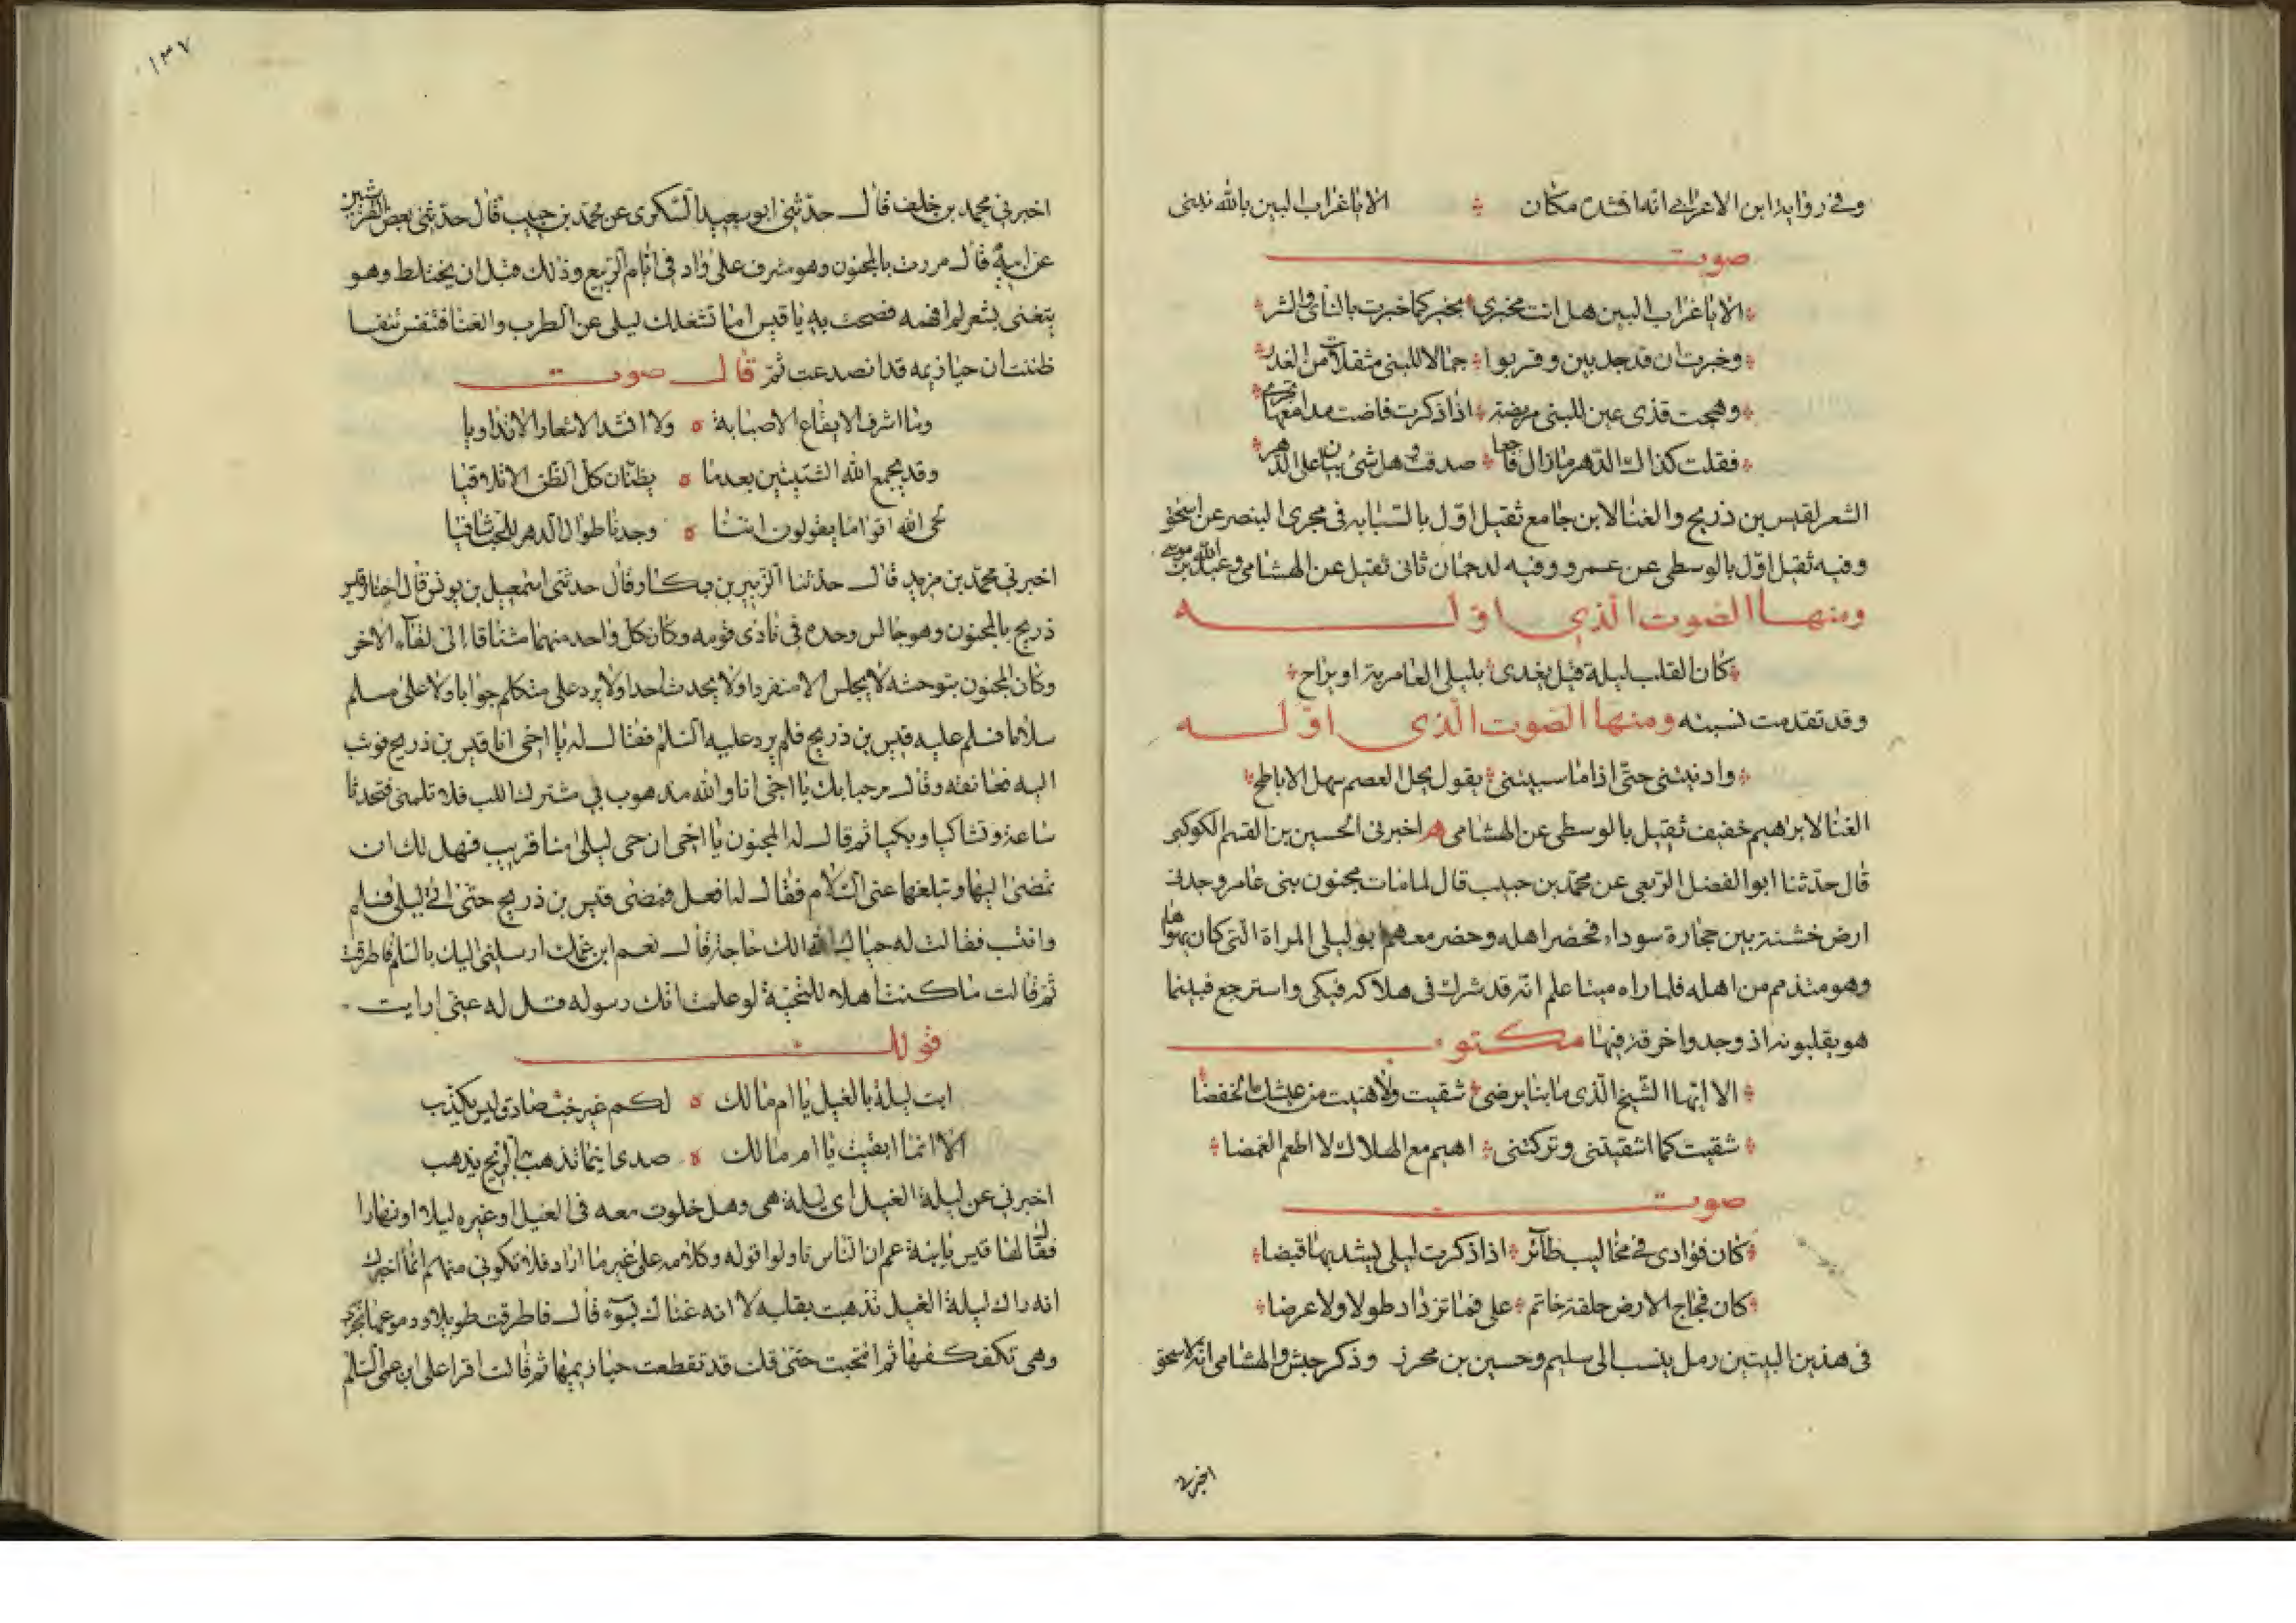 وفي رواية ابن الاعرابي انه انشده مكان ※ الا يا غراب البين بالله نبني
صوت
※ الا يا غراب البين هل انت مخبري ※ بخبر كما خبرت بالنأي والشر ※
※ وخبرت ان قد جد بين وقربوا ※ جمالا للبنى مثقلات من الغدر ※
※ وهجت قذى عين للبنى مريضة ※ اذا ذكرت فاضت مدامعها تجري ※
※ فقلت كذاك الدهر ما زال فاجعا ※ صدقت وهل شئ بباق على الدهر ※
الشعر لقيس بن ذريح والغنا لابن جامع ثقيل اول بالسبابه في مجرى البنصر عن اسحق
وفيه ثقيل اول بالوسطى عن عمرو وفيه لدحمان ثانى ثقيل عن الهشامى وعبد الله بن موسى
ومنها الصوت الذي اوله
※ كان القلب ليلة قيل يغدى ※ بليلى العامرية او يراح ※
وقد تقدمت نسبته ومنها الصوت الذي اوله
※ وادنيتنى حتى اذا ما سبيتنى ※ بقول يحل العصم سهل الاباطح ※
الغنا لابراهيم خفيف ثقيل بالوسطى عن الهشامى اخبرنى الحسين بن القسم الكوكبى
قال حدثنا ابو الفضل الربعى عن محمد بن حبيب قال لما مات مجنون بنى عامر وجد فى
ارض خشنة بين حجارة سوداء فحضر اهله وحضر معهم ابو ليلى المراة التى كان يهواها
وهو متذمم من اهله فلما راه ميتا علم انه قد شرك فى هلاكه فبكى واسترجع فبينما
هو يقلبونه اذ وجدوا خرقة فيها مكتوب
※ الا ايها الشيخ الذى ما بنا يرضى ※ شقيت ولا هنيت من عيشك الخفضا ※
※ شقيت كما اشقيتنى وتركتنى ※ اهيم مع الهلاك لا اطعم الغمضا ※
صوت
※ كان فؤادى فى مخاليب طائر ※ اذا ذكرت ليلى يشد بها قبضا ※
※ كان فجاج الارض حلقة خاتم ※ على فما تزداد طولا ولا عرضا ※
فى هذين البيتين رمل ينسب الى سليم وحسين بن محرز وذكر حبش والهشامى انه لاسحق
اخبرنى
١٣٧
اخبرني محمد بن خلف قال حدثنى ابو سعيد السكرى عن محمد بن حبيب قال حدثنى بعض القشيريين
عن ابيه قال مررت بالمجنون وهو مشرف على واد فى ايام الربيع وذلك قبل ان يختلط وهو
يتغنى بشعر لم افهمه فصحت به يا قيس اما تشغلك ليلى عن الطرب والغنا فتنفس تنفسا
ظننت ان حيازيمه قد انصدعت ثم قال صوت
وما اشرف الايفاع الا صبابة ه ولا انشد الاشعار الا تداويا
وقد يجمع الله الشتيتين بعد ما ه يظنان كل الظن الا تلاقيا
لحى الله اقواما يقولون اننا ه وجدنا طوال الدهر للحب شافيا
اخبرني محمد بن مزيد قال حدثنا الزبير بن بكار وقال حدثنى اسمعيل بن يونس قال اجتاز قيس بن
ذريح بالمجنون وهو جالس وحده فى نادى قومه وكان كل واحد منهما مشتاقا الى لقاء الاخر
وكان المجنون بتوحشه لا يجلس الا منفردا ولا يحدث احدا ولا يرد على متكلم جوابا ولا على مسلم
سلاما فسلم عليه قيس بن ذريح فلم يرد عليه السلم فقال له يا اخى انا قيس بن ذريح فوثب
اليه فعانقه وقال مرحبا بك يا اخى انا والله مذهوب بي مشترك اللب فلا تلمنى فتحدثا
ساعة وتشاكيا وبكيا ثم قال له المجنون يا اخى ان حى ليلى منا قريب فهل لك ان
تمضى اليها وتبلغها عنى السلام فقال له افعل فمضى قيس بن ذريح حتى اتى ليلى فسلم
وانتسب فقالت له حياك الله الك حاجة قال نعم ابن عمك ارسلنى اليك بالسلم فاطرقت
ثم قالت ما كنت اهلا للتحية لو علمت انك رسوله قل له عنى ارايت
قولك
ابت ليلة بالغيل يا ام مالك ه لكم غير حب صادق ليس يكذب
الا انما ابقيت يا ام مالك ه صدى اينما تذهب به الريح يذهب
اخبرني عن ليلة الغيل اى ليلة هى وهل خلوت معه فى الغيل او غيره ليلا او نهارا
فقال لها قيس يا ابنة عم ان الناس تاولوا قوله وكلامه على غير ما اراد فلا تكونى منهم انما اخبرك
انه راك ليلة الغيل فذهبت بقلبه لا انه عناك بسوء قال فاطرقت طويلا ودموعها تجرى
وهى تكفكفها ثم انتحبت حتى قلت قد تقطعت حيازيمها ثم قالت اقرا على ابن عمى السلم